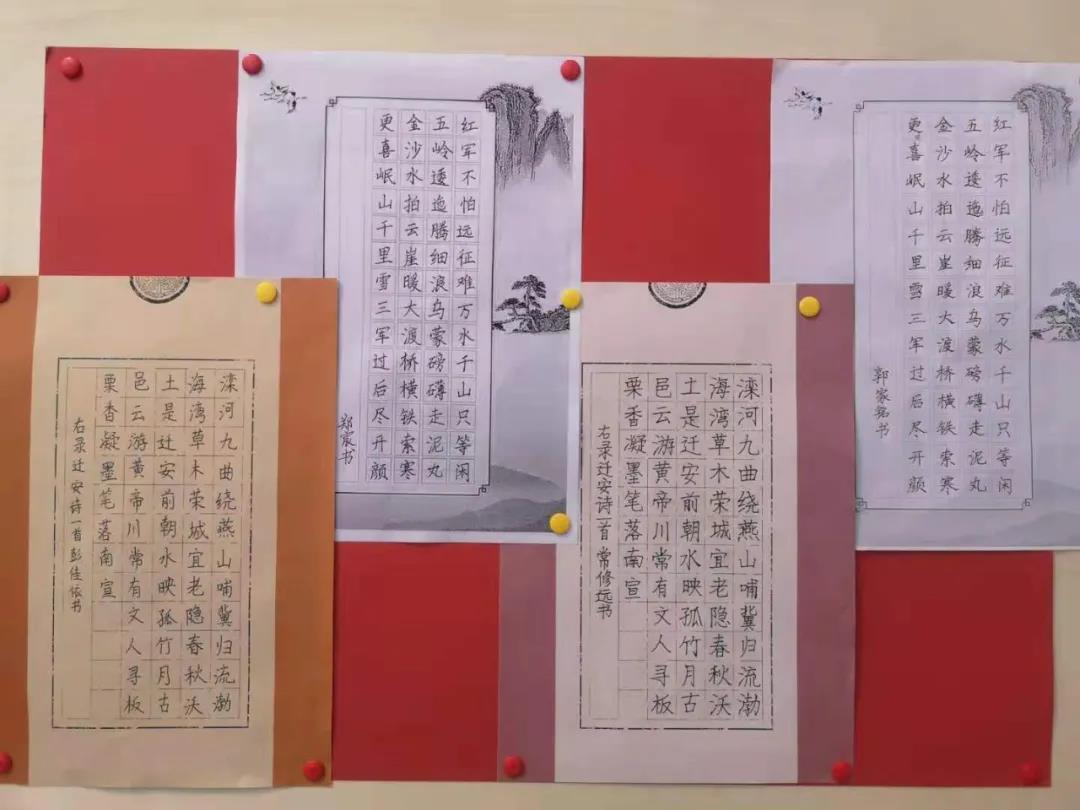 红军不怕远征难万水千山只等闲
五岭逶迤腾细浪乌蒙磅礴走泥丸
金沙水拍云崖暖大渡桥横铁索寒
更喜岷山千里雪三军过后尽开颜
郑宸书
红军不怕远征难万水千山只等闲
五岭逶迤腾细浪乌蒙磅礴走泥丸
金沙水拍云崖暖大渡桥横铁索寒
更喜岷山千里雪三军过后尽开颜
郭家铭书
滦河九曲绕燕山哺冀归流渤
海湾草木荣城宜老隐春秋沃
土是迁安前朝水映孤竹月古
邑云游黄帝川常有文人寻板
栗香凝墨笔落南宣
右录迁安诗一首彭佳依书
滦河九曲绕燕山哺冀归流渤
海湾草木荣城宜老隐春秋沃
土是迁安前朝水映孤竹月古
邑云游黄帝川常有文人寻板
栗香凝墨笔落南宣
右录迁安诗一首常修远书